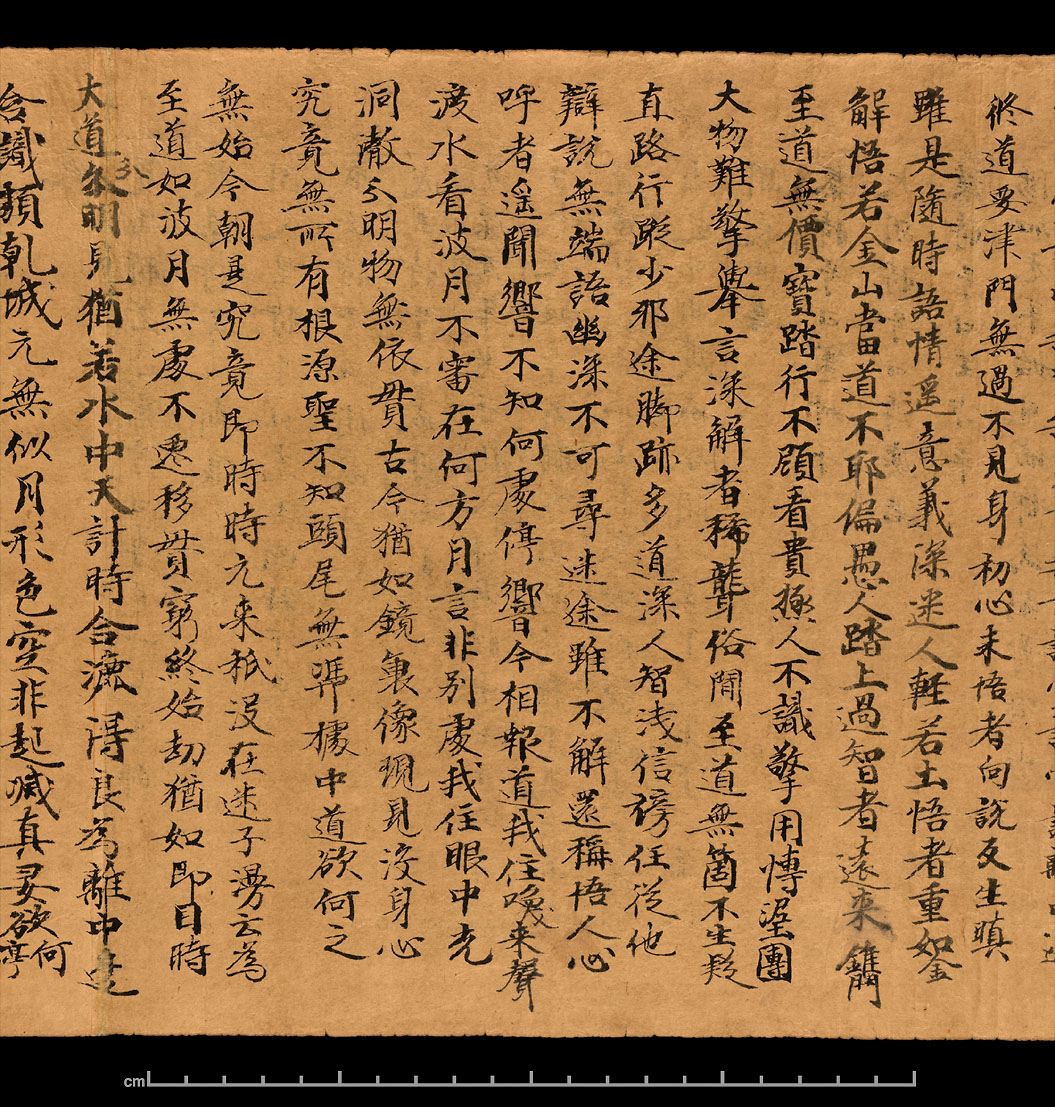 修道要津門無過不見身初心未悟者向說反生瞋
雖是隨時語情遥意義深迷人軽若土悟者重如金
解悟若金山當道不耶偏愚人踏上過智者遠来鐫
至道無價寶踏行不顧看貴極人不識擎用博埿團
大物難擎舉言深解者稀聾俗聞至道無箇不生疑
直路行蹤少邪途脚跡多道深人智淺信謗任従他
辯說無端語幽深不可尋迷途雖不解還稱悟人心
呼者遥聞響不知何處停響今相報道我住喚来聲
渡水看波月不審在何方月言非別處我住眼中光
洞澈分明物無依貫古今猶如鏡裏像現見没身心
究竟無所有根源聖不知頭尾無號據中道欲何之
無始今朝是究竟即時時元来秖没在迷子漫云為
至道如波月無處不遷移貫窮終始劫猶如即日時
大道分明見猶若水中天計時合漉得良為離中邊
含識類乹城元無似月形色空非起滅真妄欲何亭